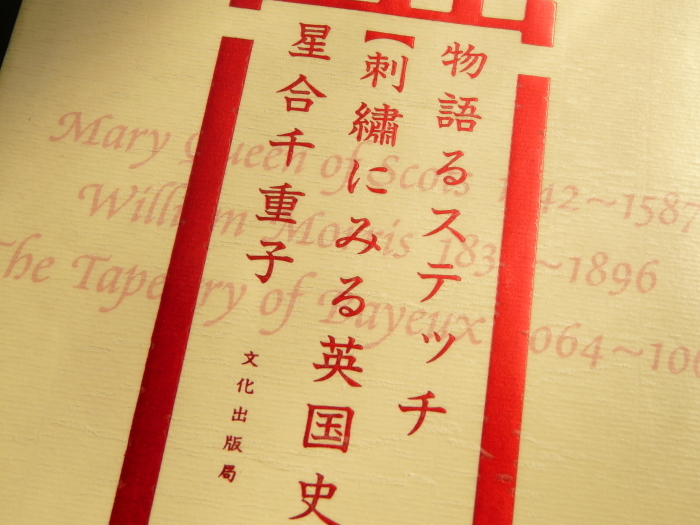 物語るステッチ
【刺繍にみる英国史
星合千重子
文化出版局
Mary Queen of Scots 1542~1587
William Morris 1834~1896
The Tapestry of Bayeux